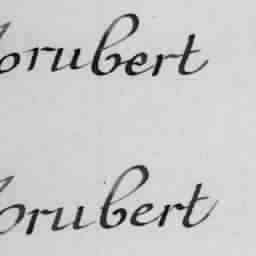 orubert
orubert